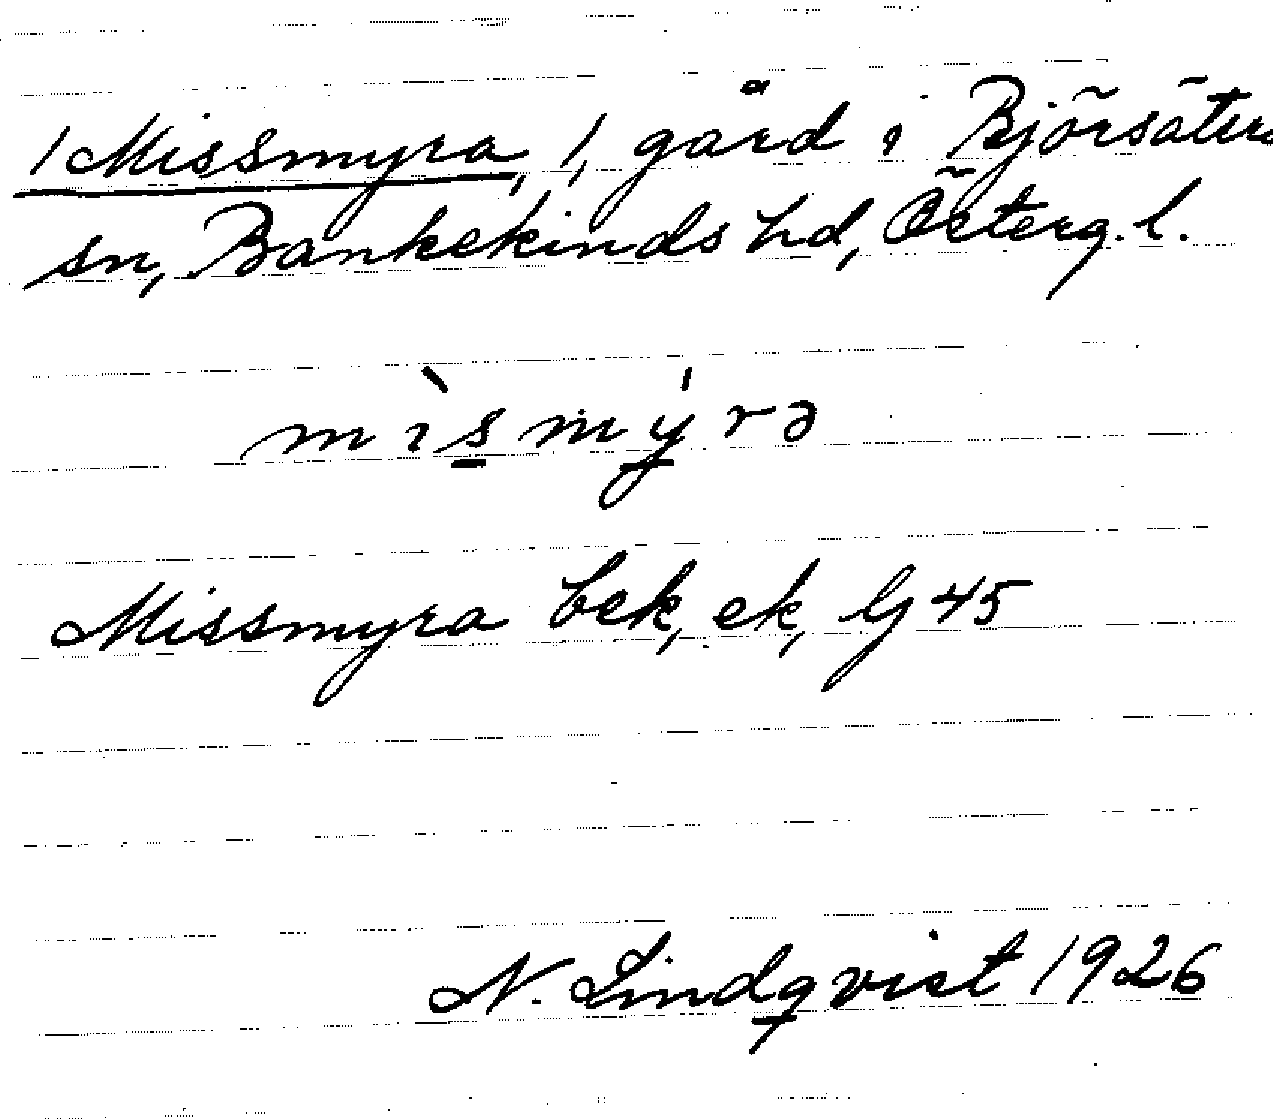 /Missmyra, /, gård i Björsäters
sn, Bankekinds hd, Österg. l.
mìsmýrə
Missmyra bek, ek, lj 45
N. Lindqvist 1926